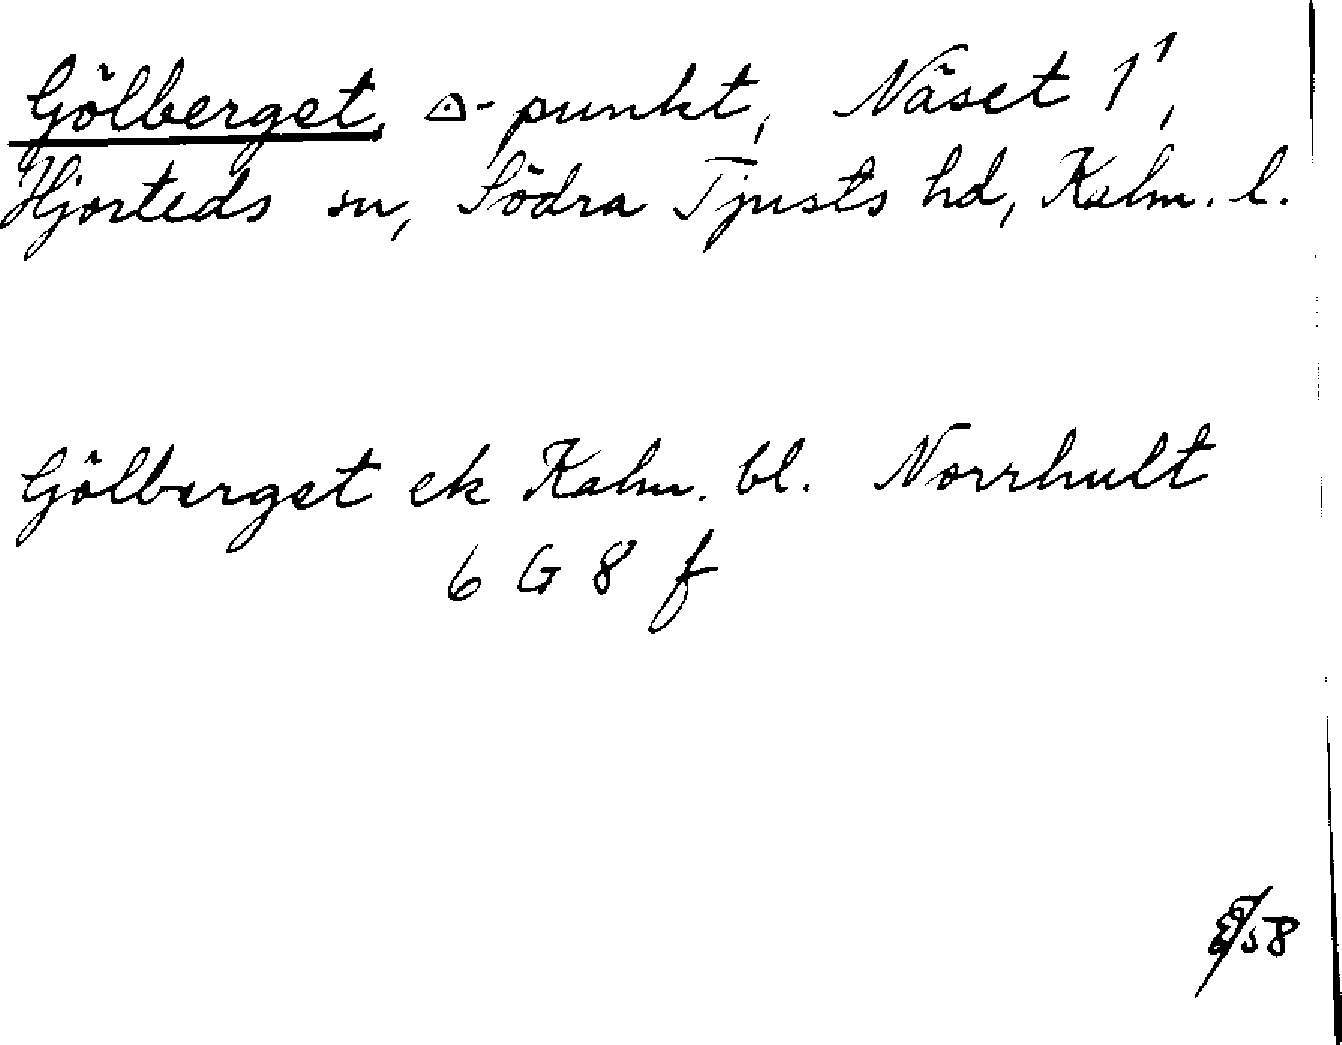 Gölberget, ⟁-punkt, Näset 1¹,
Hjorteds sn, Södra Tjusts hd, Kalm. l.
Gölberget ek Kalm. bl. Norrhult
6 G 8 f
58